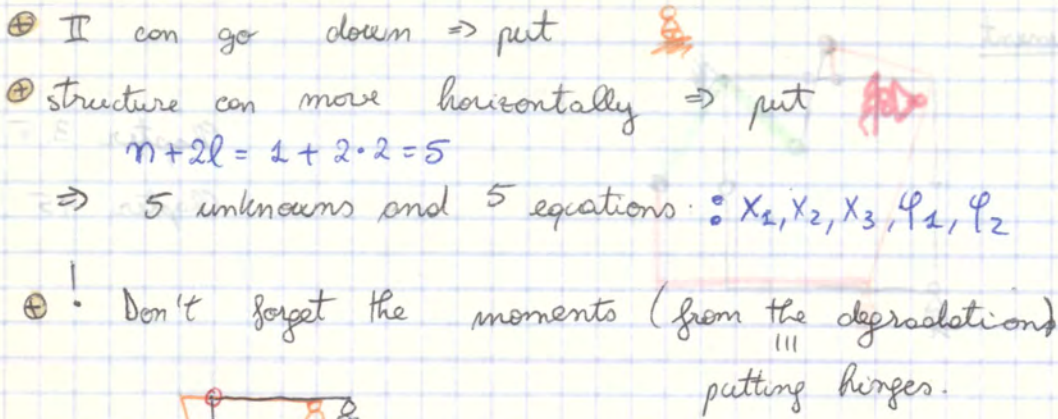 ⊕ II can go down => put
⊕ structure can move horizontally => put
n+2l = 1 + 2·2 = 5
=> 5 unknowns and 5 equations : X₁, X₂, X₃, φ₁, φ₂
⊕ ! Don't forget the moments (from the degradation)
putting hinges.